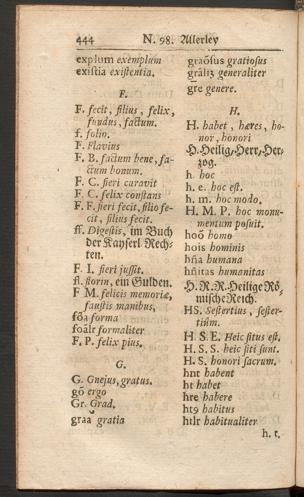 444 N. 98. Allerley
explum exemplum
existia existentia.
F.
F. fecit, filius, felix,
fundus, factum.
f. folio.
F. Flavius
F. B. factum bene, fa-
ctum bonum.
F. C. fieri curavit
F. C. felix constans
F. F. fieri fecit, filio fe-
cit, filius fecit.
ff. Digestis, im Buch
der Kayserl. Rech-
ten.
F. I. fieri jussit.
fl. florin, ein Gulden.
F M. felicis memoriæ,
faustis manibus,
fōa forma
foālr formaliter
F. P. felix pius.
G.
G. Gnejus, gratus.
gō ergo
Gr. Grad.
graa gratia
graōsus gratiosus
grāliꝫ generaliter
gre genere.
H.
H. habet, hæres, ho-
nor, honori
H. Heilig, Herr, Her-
zog.
h. hoc
h. e. hoc est.
h. m. hoc modo.
H. M. P. hoc monu-
mentum posuit.
hoō homo
hois hominis
hn̄a humana
hn̄itas humanitas
H. R. R. Heilige Rö-
mische Reich.
HS. Sestertius, sester-
tiûm.
H S. E. Heic situs est.
H. S. S. heic siti sunt.
H. S. honori sacrum.
hnt habent
ht habet
hre habere
htꝯ habitus
htlr habitualiter
h. t.